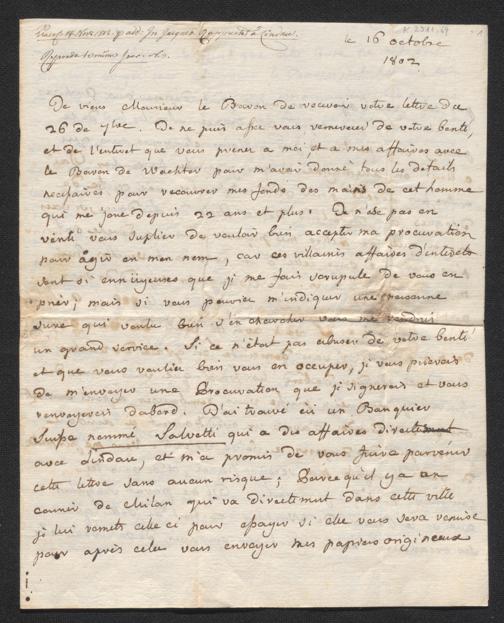 le 16 octobre
1802
Je viens Monsieur le Baron de recevoir votre lettre du
26 de 7bre. Je ne puis assé vous remercier de votre bonté,
et de l'intret que vous prenez a moi et a mes affaires avec
le Baron de Waechter pour m'avoir donné tous les details
necessaires pour recouvrer mes fonds des mains de cet homme
qui me joue depuis 22 ans et plus. Je n'ose pas en
verité vous suplier de vouloir bien accepter ma procuration
pour agir en mon nom, car ces villaines affaires d'interets
sont si ennuyeuses que je me fais scrupule de vous en
prier; mais si vous pouviez m'indiquer une personne
sure qui voulu bien s'en charger vous me rendriez
un grand service. Si ce n'était pas abuser de votre bonté
et que vous vouliez bien vous en occuper, je vous prierais
de m'envoyer une Procuration que je signerais et vous
renvoyerais d'abord. J'ai trouvé ici un Banquier
Suisse nommé Salvetti qui a des affaires directement
avec Lindau, et m'a promis de vous faire parvenir
cette lettre sans aucun risque; Parce qu'il y a un
courier de Milan qui va directement dans cette ville
je lui remets celle ci pour essayer si elle vous sera remise
pour après cela vous envoyer mes papiers origineaux